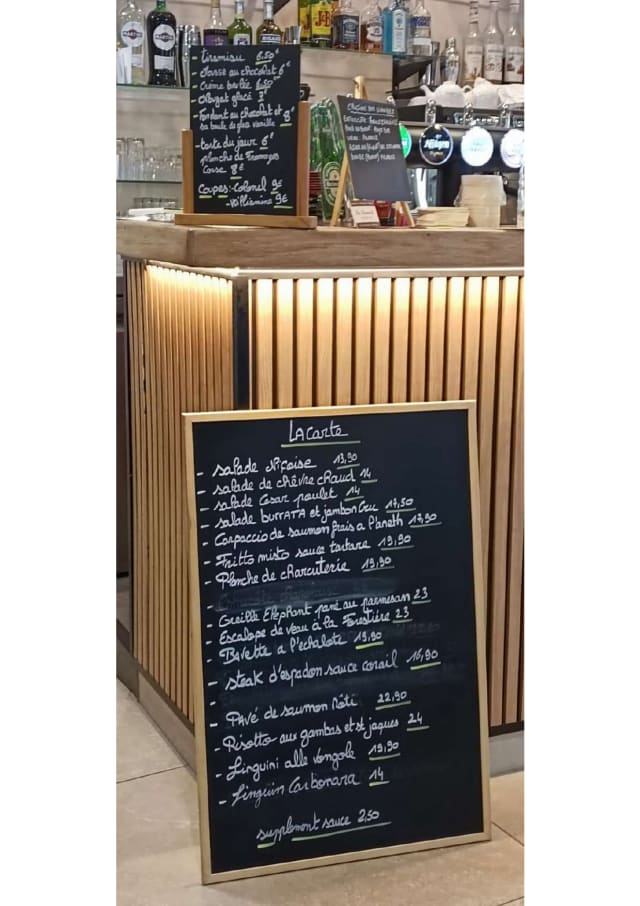 - tiramisu 6.50€
- Mousse au chocolat 6€
- Crème brûlée 6.50€
- Nougat glacé
- Fondant au chocolat et
sa boule de glace vanille 8€
- tarte du jour 6€
planche de Fromages
Corse 8€
Coupes: - Colonel 9€
- Williamine 9€
ORIGINE DES VIANDES
FRANCE
MARTINI
Heineken
Affligem
LA Carte
- salade Niçoise 13,90
- salade de chêvre chaud 14
- salade Cesar poulet 14
- salade burrATA et jambon Cru 17,50
- Carpaccio de saumon frais a l'aneth 17,90
- Fritto misto sauce tartare 19,90
- Planche de charcuterie 19,90
-
- Oreille Elephant pané au parmesan 23
- Escalope de veau à la Forestière 23
- Bavette a l'échalote 19,90
- steak d'espadon sauce corail 16,90
-
- PAvé de saumon Rôti 22,90
- Risotto aux gambas et st jaques 24
- Linguini alle Vongole 19,90
- Linguin Carbonara 14
supplement sauce 2,50